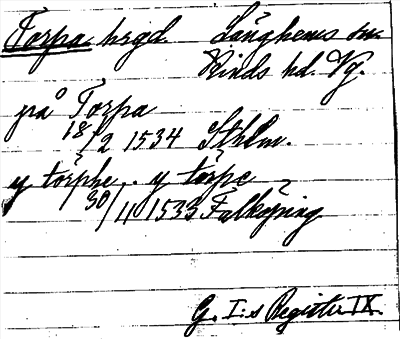 Torpa hrgd Länghems sn.
Kinds hd. Vg.
på Torpa
18/2 1534 Sthlm.
y törphe, y torpe
30/11 1533 Falköping
G. I:s Register IX.